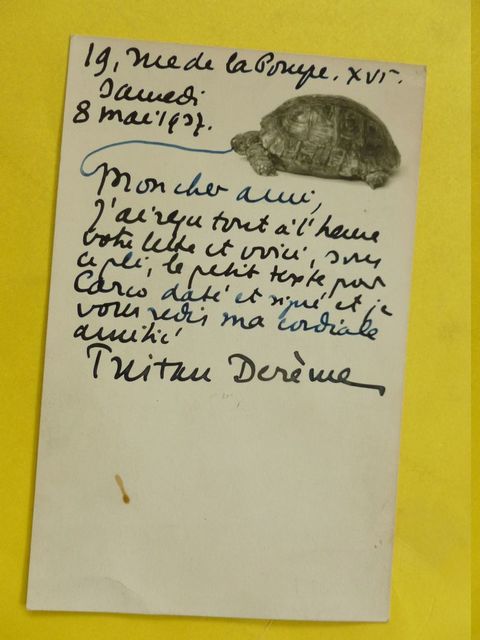 19, rue de la Pompe. XVIe.
Samedi
8 mai 1937.
Mon cher ami,
J'ai reçu tout à l'heure
votre lettre et voici, sous
ce pli, le petit texte pour
Carco daté et signé et je
vous redis ma cordiale
amitié
Tristan Derème